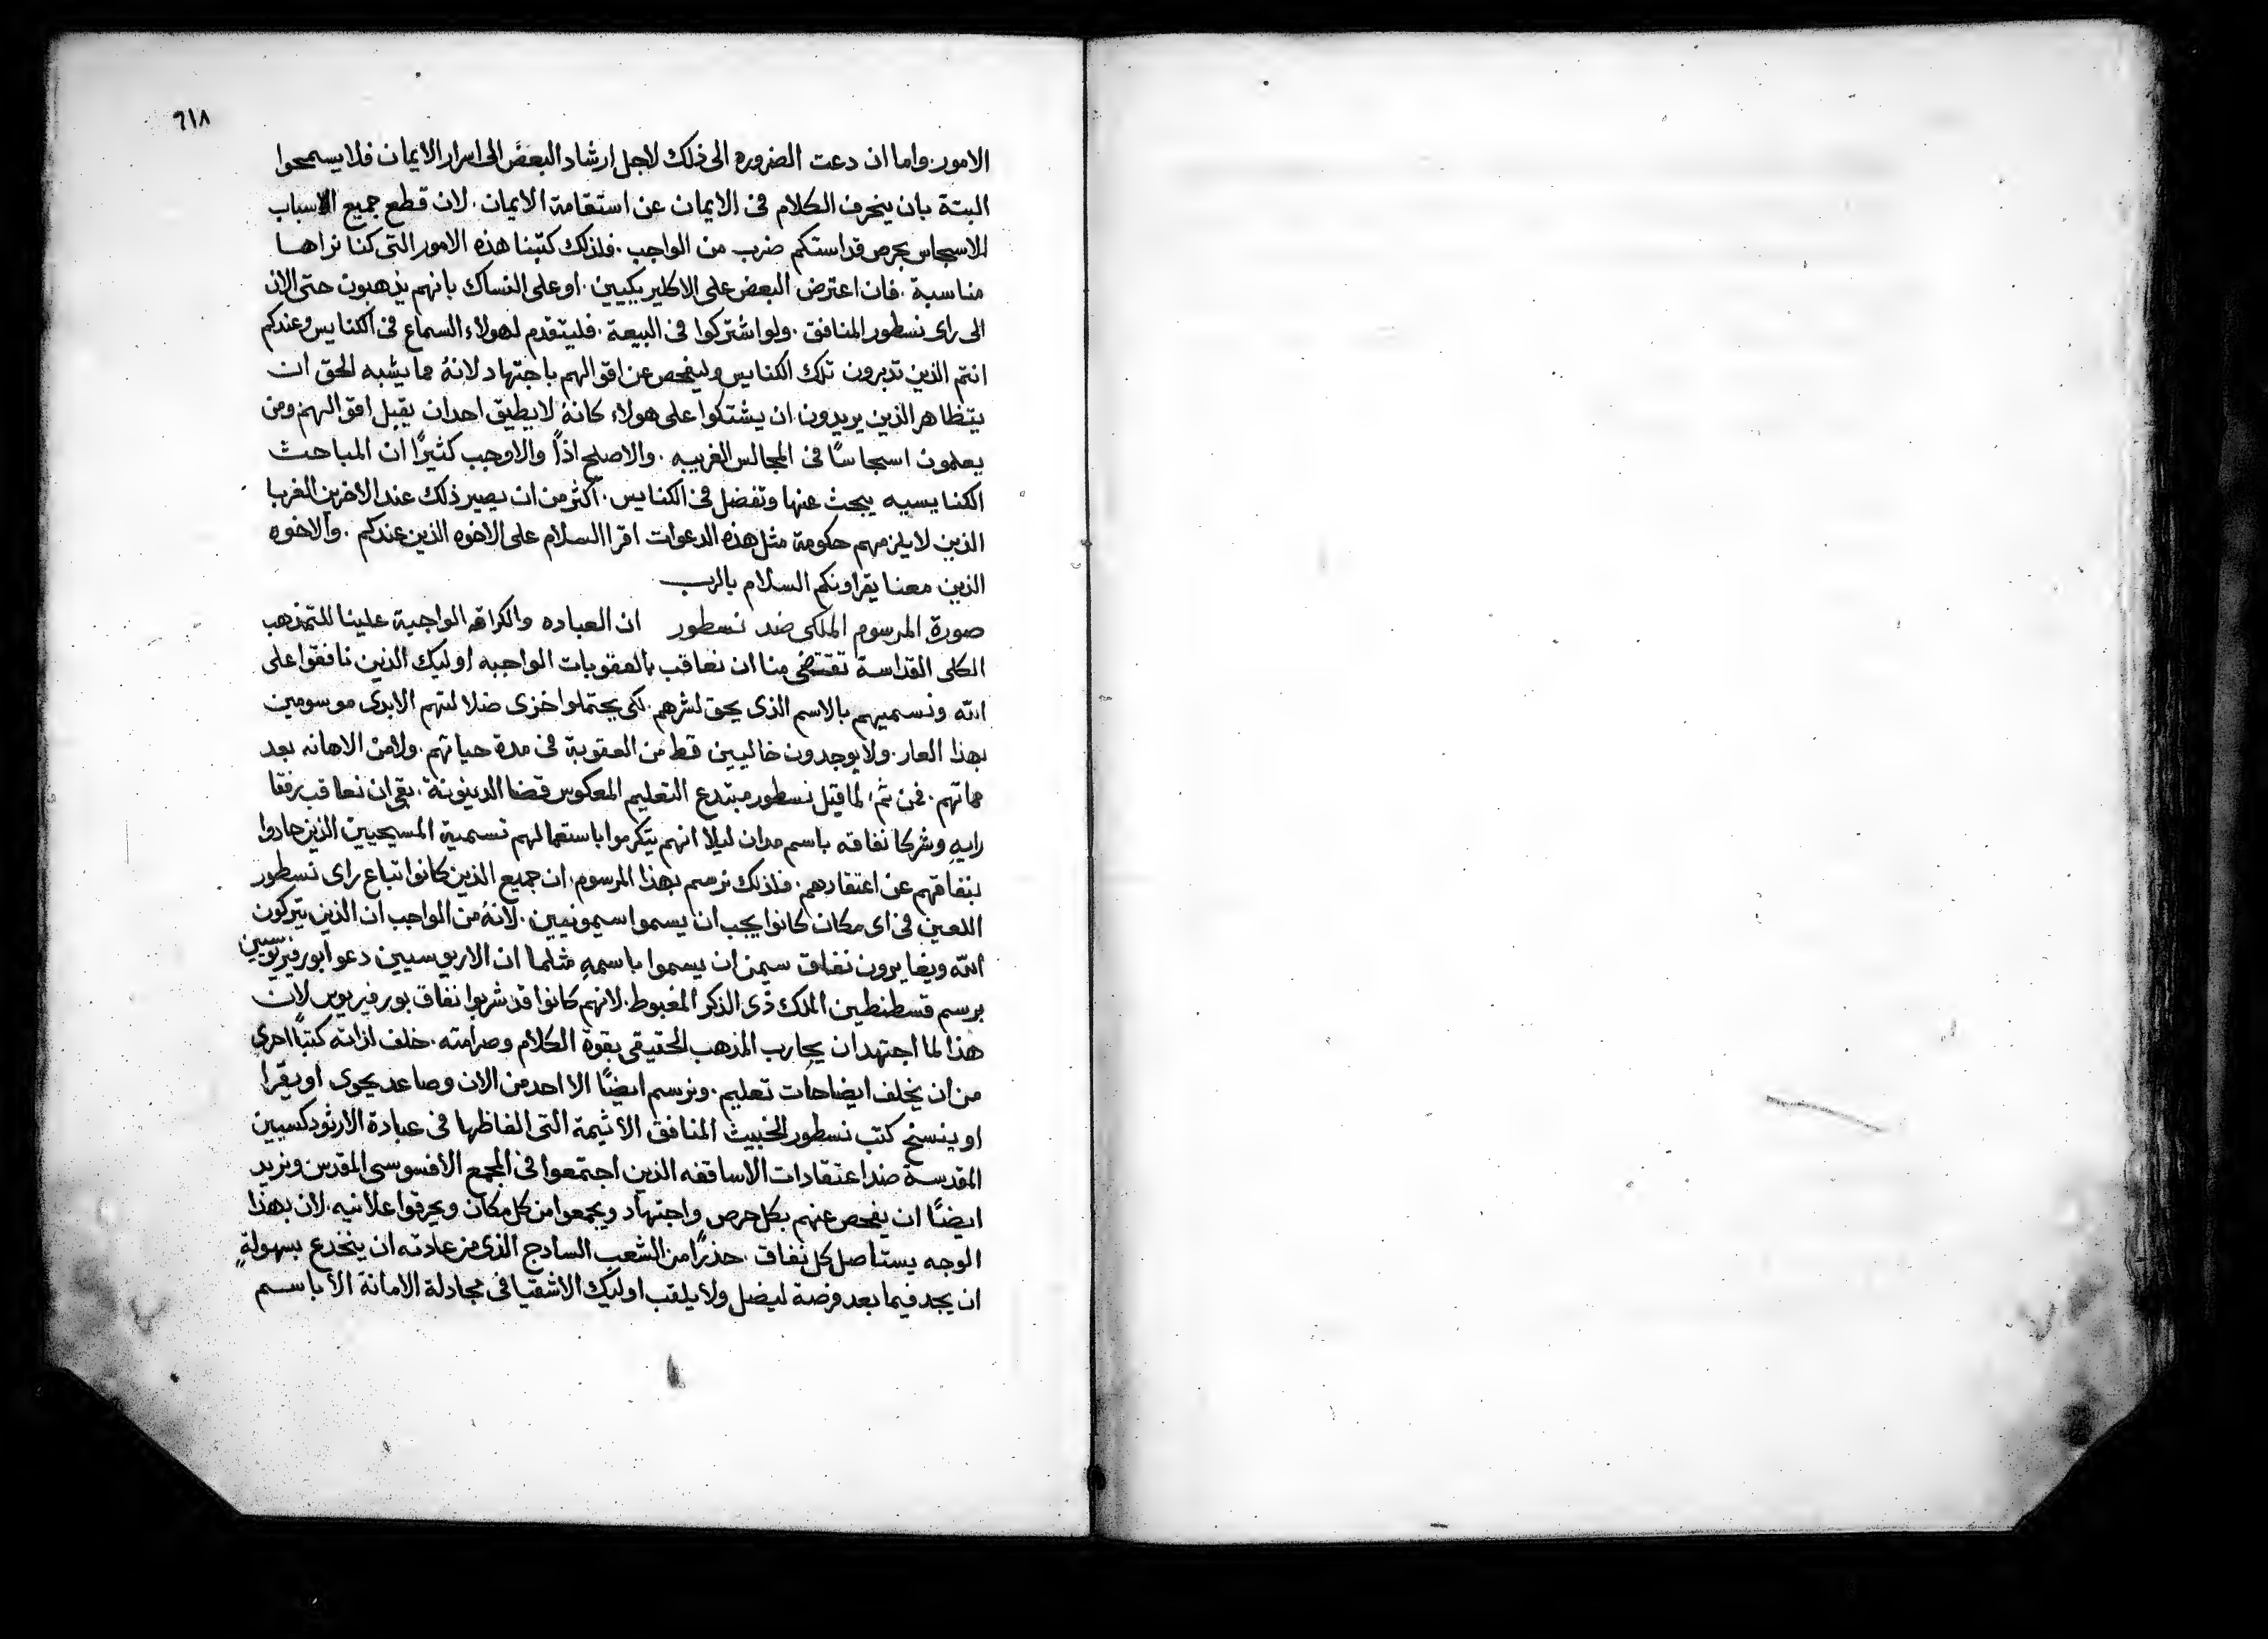 ٦١٨
الامور. واما ان دعت الضروره الى ذلك لاجل ارشاد البعض الى اسرار الايمان فلا يسمحوا
البتة بان ينحرف الكلام فى الايمان عن استقامة الايمان. لان قطع جميع الاسباب
للاسجاس بحرص قداستكم ضرب من الواجب. فلذلك كتبنا هذه الامور التى كنا نراها
مناسبة. فان اعترض البعض على الاكليريكيين. او على النساك بانهم يذهبون حتى الان
الى راى نسطور المنافق. ولو اشتركوا فى البيعة. فليتقدم لهولاء السماع فى الكنايس وعندكم
انتم الذين تدبرون تلك الكنايس وليفحص عن اقوالهم باجتهاد لانهُ مما يشبه الحق ان
يتظاهر الذين يريدون ان يشتكوا على هولاء كانهُ لا يطيق احد ان يقبل اقوالهم ومن
يعلمون اسجاسًا فى المجالس الغريبه. والاصلح اذاً والاوجب كثيرًا ان المباحث
الكنايسيه يبحث عنها وتفضل فى الكنايس. اكثر من ان يصير ذلك عند الاخرين الغربا
الذين لا يلزمهم حكومة مثل هذه الدعوات اقرا السلام على الاخوه الذين عندكم. والاخوه
الذين معنا يقراونكم السلام بالرب
صورة المرسوم الملكى ضد نسطور ان العباده والكرامه الواجبة علينا للتمذهب
الكلى القداسة تقتضى منا ان نعاقب بالعقوبات الواجبه اوليك الذين نافقوا على
الله ونسميهم بالاسم الذى يحق لشرهم. لكى يحتملوا خزى ضلالتهم الابدى موسومين
بهذا العار. ولا يوجدون خاليين قط من العقوبة فى مدة حياتهم. ولا من الاهانه بعد
مماتهم. فمن ثم، لما قبل نسطور مبتدع التعليم المعكوس قضا الدينونة. بقى ان نعاقب رفقا
رايهِ وشركا نفاقه باسم مدان ليلا انهم يتكرموا باستعمالهم تسمية المسيحيين الذين حادوا
بنفاقهم عن اعتقادهم. فلذلك نرسم بهذا المرسوم، ان جميع الذين كانوا تباع راى نسطور
اللعين فى اى مكان كانوا يجب ان يسموا سيمونيين. لانهُ من الواجب ان الذين يتركون
الله ويغايرون نفاق سيمن ان يسموا باسمهِ مثلما ان الاريوسيين دعوا بورفيريوسيين
برسم قسطنطين الملك ذى الذكر المغبوط. لانهم كانوا قد شربوا نفاق بورفيريوس لان
هذا لما اجتهد ان يحارب المذهب الحقيقى بقوة الكلام وصرامته. خلف لذاته كتبًا احرى
من ان يخلف ايضاحات تعليم. ونرسم ايضًا الا احد من الان وصاعد يحوى او يقرا
او ينسخ كتب نسطور الخبيث المنافق الاثيمة التى الفاظها فى عبادة الارثودكسيين
المقدسة ضد اعتقادات الاساقفه الذين اجتمعوا فى المجمع الافسوسى المقدس ونريد
ايضًا ان يفحص عنهم بكل حرص واجتهاد ويجمعوا من كل مكان ويحرقوا علانيه. لان بهذا
الوجه يستاصل كل نفاق. حذرًا من الشعب السادج الذى من عادته ان ينخدع بسهولةٍ
ان يجد فيما بعد فرصة ليضل ولا يلقب اوليك الاشقيا فى مجادلة الامانة الا باسم